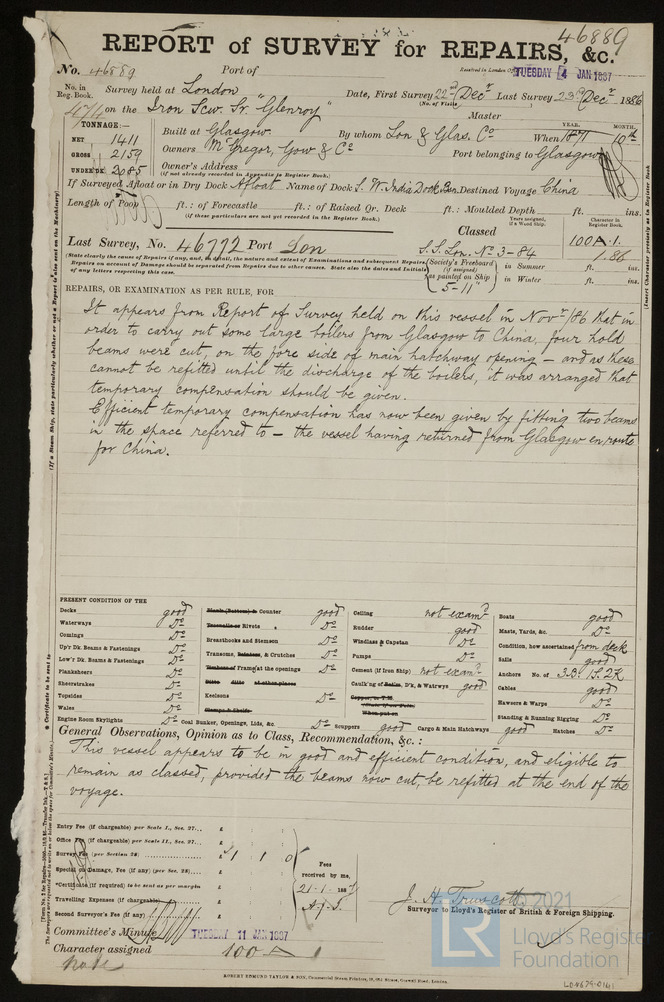 46889
REPORT of SURVEY for REPAIRS, &c.
No. 46889 Port of Received in London Office TUESDAY 4 JAN 1887
No. in Reg. Book. Survey held at London Date, First Survey 22d Decr Last Survey 23d Decr 1886
(No. of Visits)
474 on the Iron Scw. Sr. "Glenroy" Master
TONNAGE:— YEAR. MONTH.
NET 1411 Built at Glasgow By whom Lon & Glas. Co When 1871 10th
GROSS 2159 Owners McGregor, Gow & Co Port belonging to Glasgow
UNDER DK. 2085 Owner's Address
(if not already recorded in Appendix to Register Book.)
If Surveyed Afloat or in Dry Dock Afloat Name of Dock S. W. India Dock Destined Voyage China
Length of Poop ft.: of Forecastle ft.: of Raised Qr. Deck ft.: Moulded Depth ft. ins.
(if these particulars are not yet recorded in the Register Book.)
Years assigned, if a Wood Ship. Character in Register Book.
Classed 100A.1.
Last Survey, No. 46772 Port Lon S.S. Lon. No 3-84 1.86
(State clearly the cause of Repairs if any, and, in detail, the nature and extent of Examinations and subsequent Repairs. Repairs on account of Damage should be separated from Repairs due to other causes. State also the dates and Initials of any letters respecting this case.
(Society's Freeboard (if assigned) as painted on Ship 5-11" in Summer ft. ins.
in Winter ft. ins.
REPAIRS, OR EXAMINATION AS PER RULE, FOR
It appears from Report of Survey held on this vessel in Novr/86 that in
order to carry out some large boilers from Glasgow to China, four hold
beams were cut, on the fore side of main hatchway opening – and as these
cannot be refitted until the discharge of the boilers, it was arranged that
temporary compensation should be given.
Efficient temporary compensation has now been given by fitting two beams
in the space referred to – the vessel having returned from Glasgow en route
for China.
PRESENT CONDITION OF THE
Decks good
Waterways Do
Comings Do
Up'r Dk. Beams & Fastenings Do
Low'r Dk. Beams & Fastenings Do
Planksheers Do
Sheerstrakes Do
Topsides Do
Wales Do
Engine Room Skylights Do
Plank (Bottom) & Counter good
Treenails or Rivets Do
Breasthooks and Stemson Do
Transoms, Pointers, & Crutches Do
Timbers of Frame at the openings Do
Ditto ditto at other places
Keelsons Do
Clamps & Shelfs
Coal Bunker, Openings, Lids, &c. Do
Ceiling not examd
Rudder good
Windlass & Capstan Do
Pumps Do
Cement (if Iron Ship) not examd
Caulk'ng of Bottm, D'k, & Watrwys good
Scuppers good
Cargo & Main Hatchways good
Boats good
Masts, Yards, &c. Do
Condition, how ascertained from deck
Sails good
Anchors No. of 3.B. 1S. 2K
Cables good
Hawsers & Warps Do
Standing & Running Rigging Do
Hatches Do
General Observations, Opinion as to Class, Recommendation, &c.:
This vessel appears to be in good and efficient condition, and eligible to
remain as classed, provided the beams now cut, be refitted at the end of the
voyage.
Entry Fee (if chargeable) per Scale I., Sec. 27... £
Office Fee (if chargeable) per Scale II., Sec. 27... £
Survey Fee (per Section 28) £ 1 1 0
Special or Damage, Fee (if any) (per Sec. 28) £
*Certificate (if required) to be sent as per margin
Travelling Expenses (if chargeable) £
Second Surveyor's Fee (if any) £
Fees received by me, 21.1.1887 A.J.S.
J. H. Truscott
Surveyor to Lloyd's Register of British & Foreign Shipping.
Committee's Minute TUESDAY 11 JAN 1887
Character assigned 100 A 1
note
ROBERT EDMUND TAYLOR & SON
© 2021
LR
Lloyd's Register
Foundation